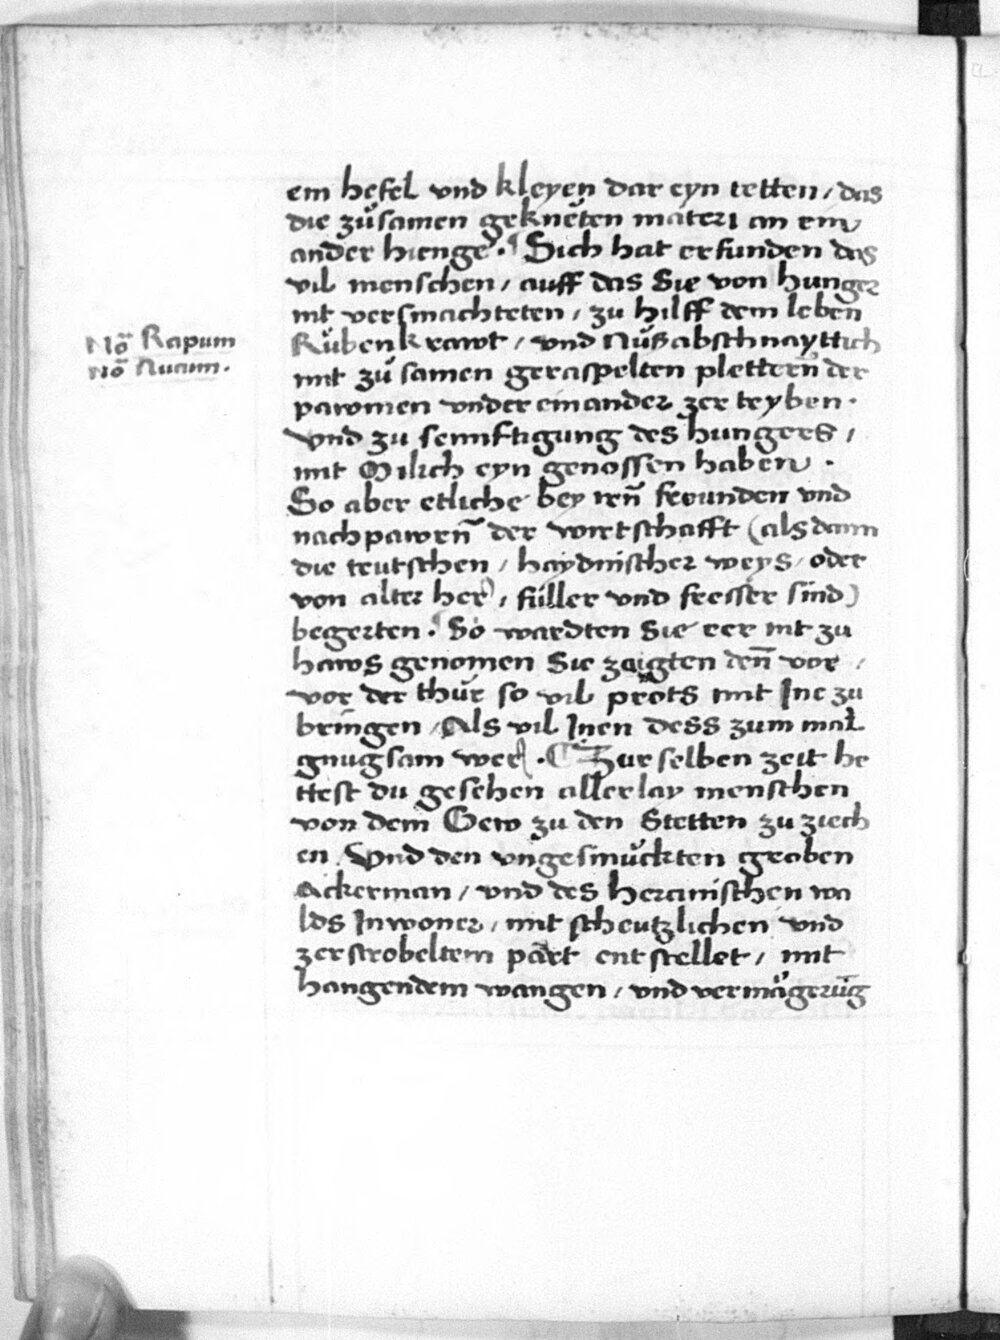 ein hefel vnd kleyen dar eyn tetten / das
die zůsamen geknėten materi an ein
ander hienge . Sich hat erfunden das
vil menschen / auff das Sie von hunger
nit versmachteten / zu hilff dem leben
Rübenkrawt / vnd Nůßabschnayttich
Nõ Rapum
Nõ Nucum .
mit zů samen geraspelten pletterñ der
pawmen vnder einander zerteyben .
Vnd zu sennftigung des hungers /
mit Milich eyn genossen haben .
So aber etliche bey irñ freunden vnd
nachpawrñ der wirtschafft (als dann
die teutschen / haydnischer weys / oder
von alter her / füller vnd fresser sind)
begerten . So wardten Sie eer nit zu
haws genomen Sie zaigten deñ vor /
vor der thür so vil prots mit Ine zu
bringen / Als vil Inen dess zum mal
gnugsam wer . Zur selben zeit he
ttest du gesehen allerlay menschen
von dem Gew zu den Stetten zu ziech
en / Vnd den vngesmůckten groben
Ackerman / vnd des hercinischen wa
lds Inwoner / mit scheutzlichen vnd
zerstrobeltem part entstellet / mit
hangendem wangen / vnd vermägerũg